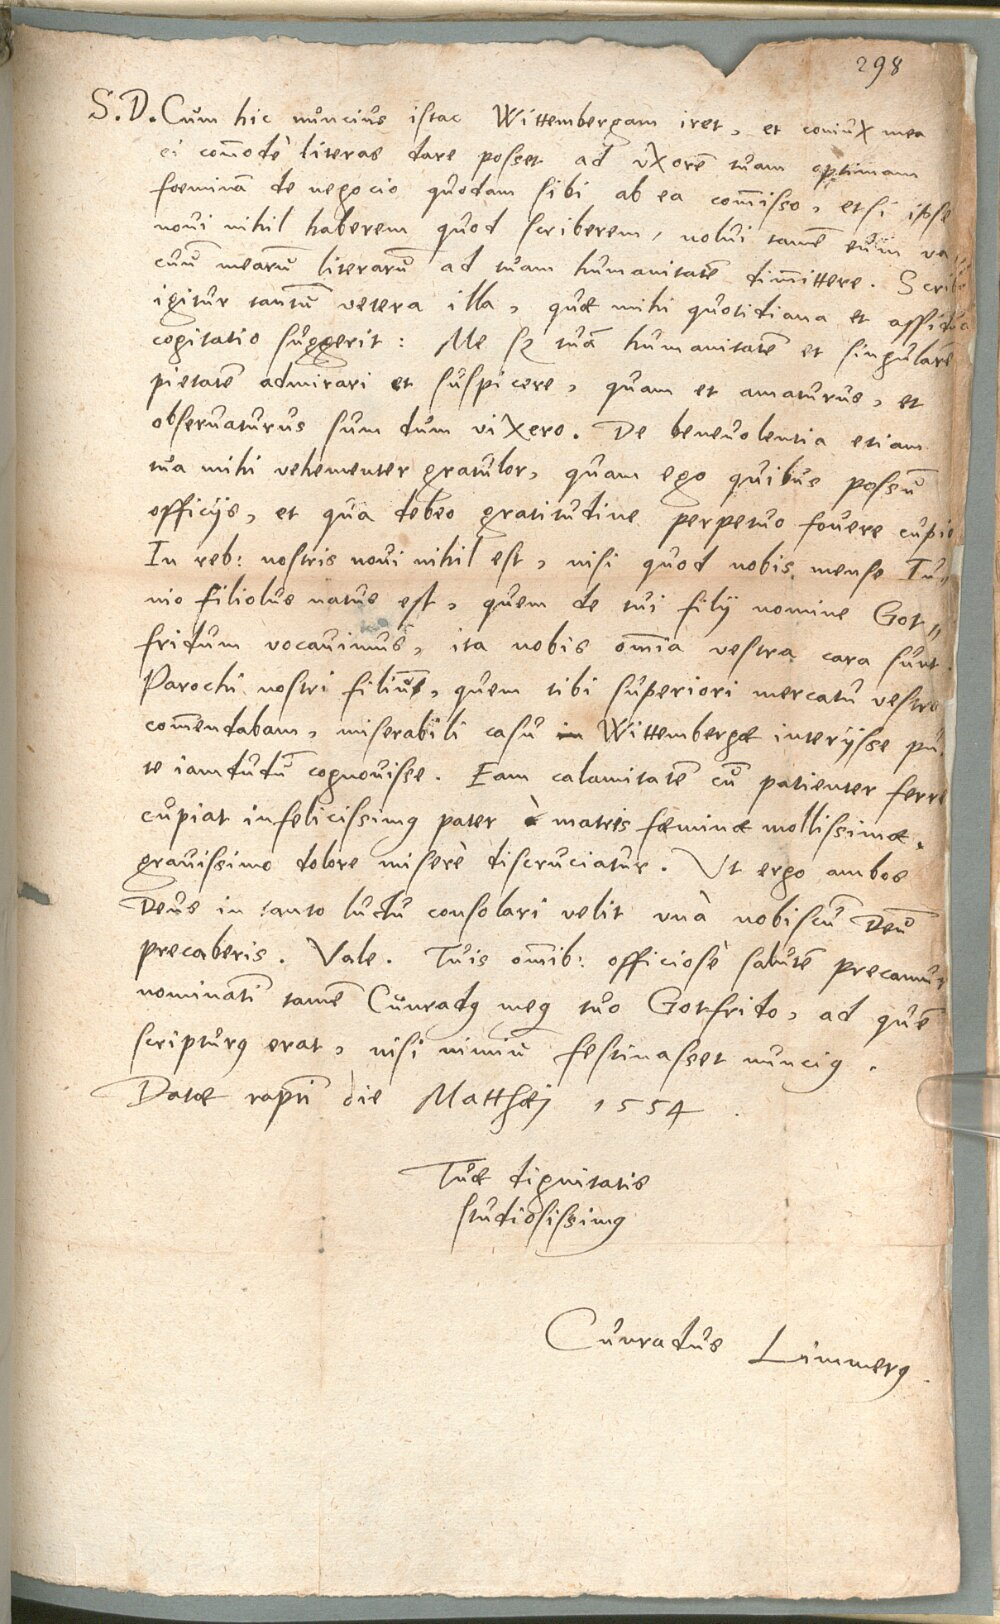 298
S.D. Cum hic nuncius istac Wittembergam iret, et coniux mea
ei com̄odè literas dare posset ad vxorē tuam optimam
foeminā de negocio quodam sibi ab ea com̄isso, etsi ipse
noui nihil haberem quod scriberem, nolui tamē eum va
cuū mearū literarū ad tuam humanitatē dimittere. Scribo
igitur tantū vetera illa, quæ mihi quotidiana et assidua
cogitatio suggerit: Me sꝫ tuā humanitatē et singularē
pietatē admirari et suspicere, quam et amaturus, et
obseruaturus sum dum vixero. De beneuolentia etiam
tua mihi vehementer gratulor, quam ego quibus possū
officijs, et qua debeo gratitudine perpetuo fouere cupio
In reb: nostris noui nihil est, nisi quod nobis mense Iu„
nio filiolus natus est, quem de tui filij nomine Got„
fridum vocauimus, ita nobis om̄ia vestra cara sunt.
Parochi nostri filiū, quem tibi superiori mercatu vestro
com̄endabam, miserabili casu Wittembergæ interijsse pu
te iamdudū cognouisse. Eam calamitatē cū patienter ferre
cupiat infelicissimꝰ pater è matris fæminæ mollissimæ
grauissimo dolore miserè discruciatur. Vt ergo ambos
Deus in tanto luctu consolari velit vnà nobiscū Deū
precaberis. Vale. Tuis om̄ib: officiosè salutē precamur
nominatī tamē Cunradꝰ meꝰ tuo Gotfrido, ad quē
scripturꝰ erat, nisi nimiū festinasset nunciꝰ.
Datæ raptī die Matthæj 1554.
Tuæ dignitatis
studiosissimꝰ
Cunradus Limmerꝰ.